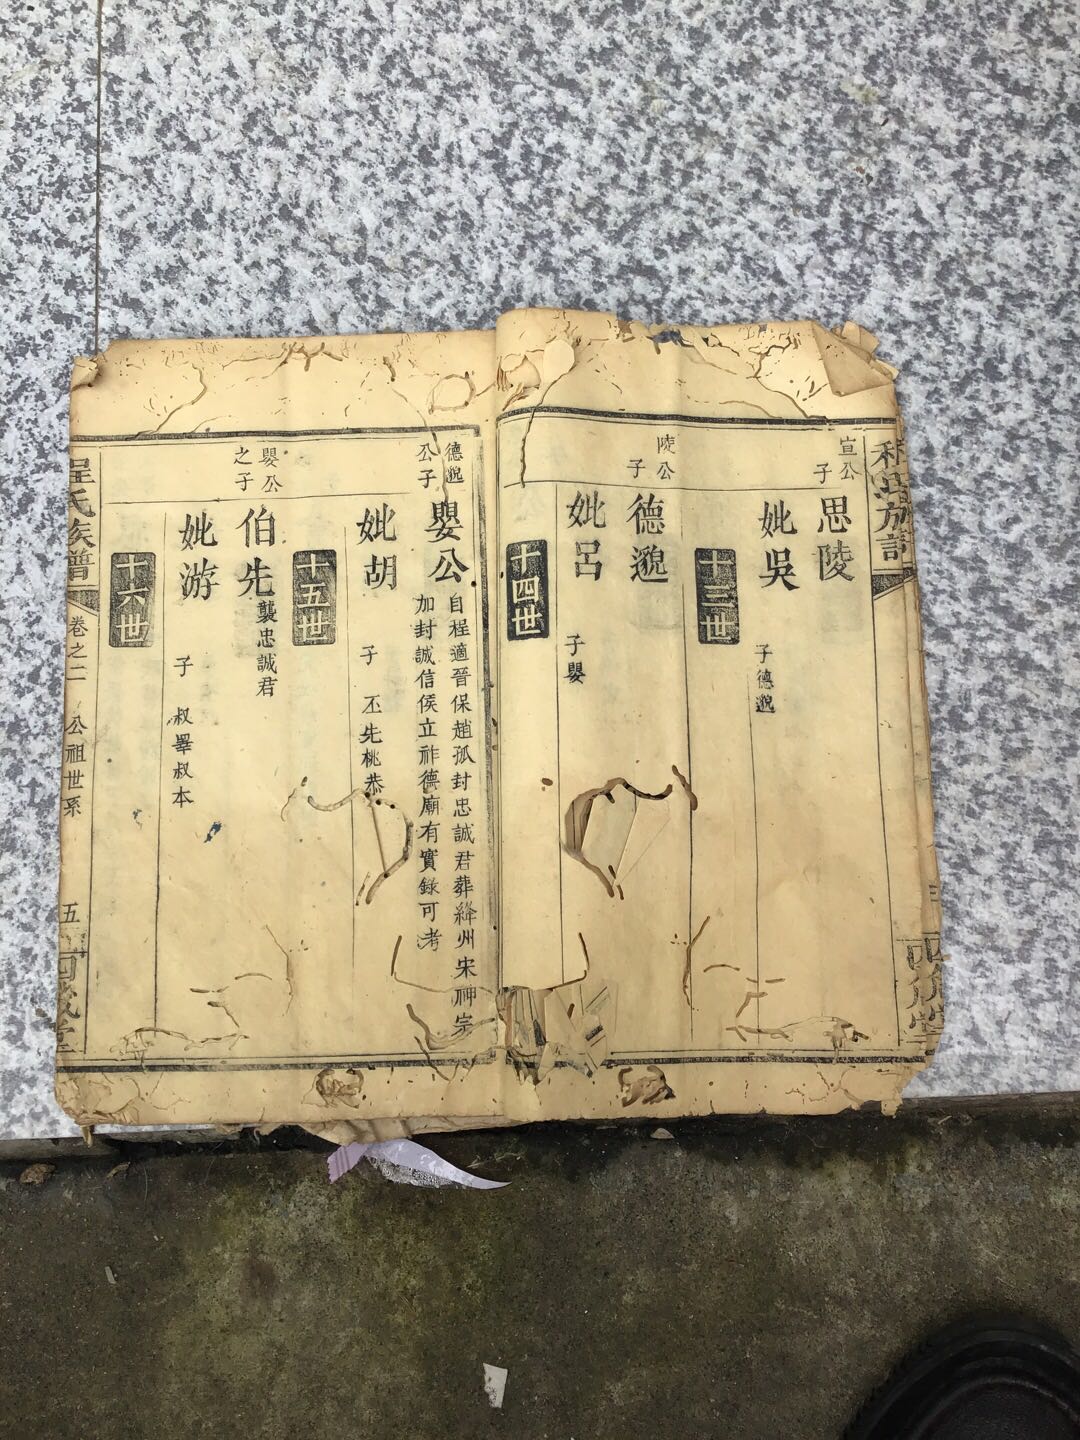 程氏族譜
四箴堂
宣公
子
思陵
妣吳
子德邈
十三世
陵公
子
德邈
妣呂
子嬰
十四世
德邈
公子
嬰公
自程適晉保趙孤封忠誠君葬絳州宋神宗
加封誠信侯立祚德廟有實錄可考
妣胡
子 丕先桃恭
十五世
嬰公
之子
伯先
襲忠誠君
妣游
子 叔㽮叔本
十六世
程氏族譜
卷之二 公祖世系
五
四箴堂